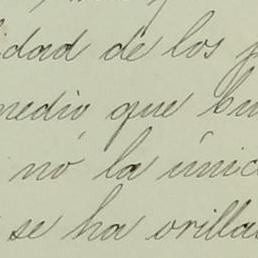 idad de los p
medio que bu
no la únic
se ha orilla